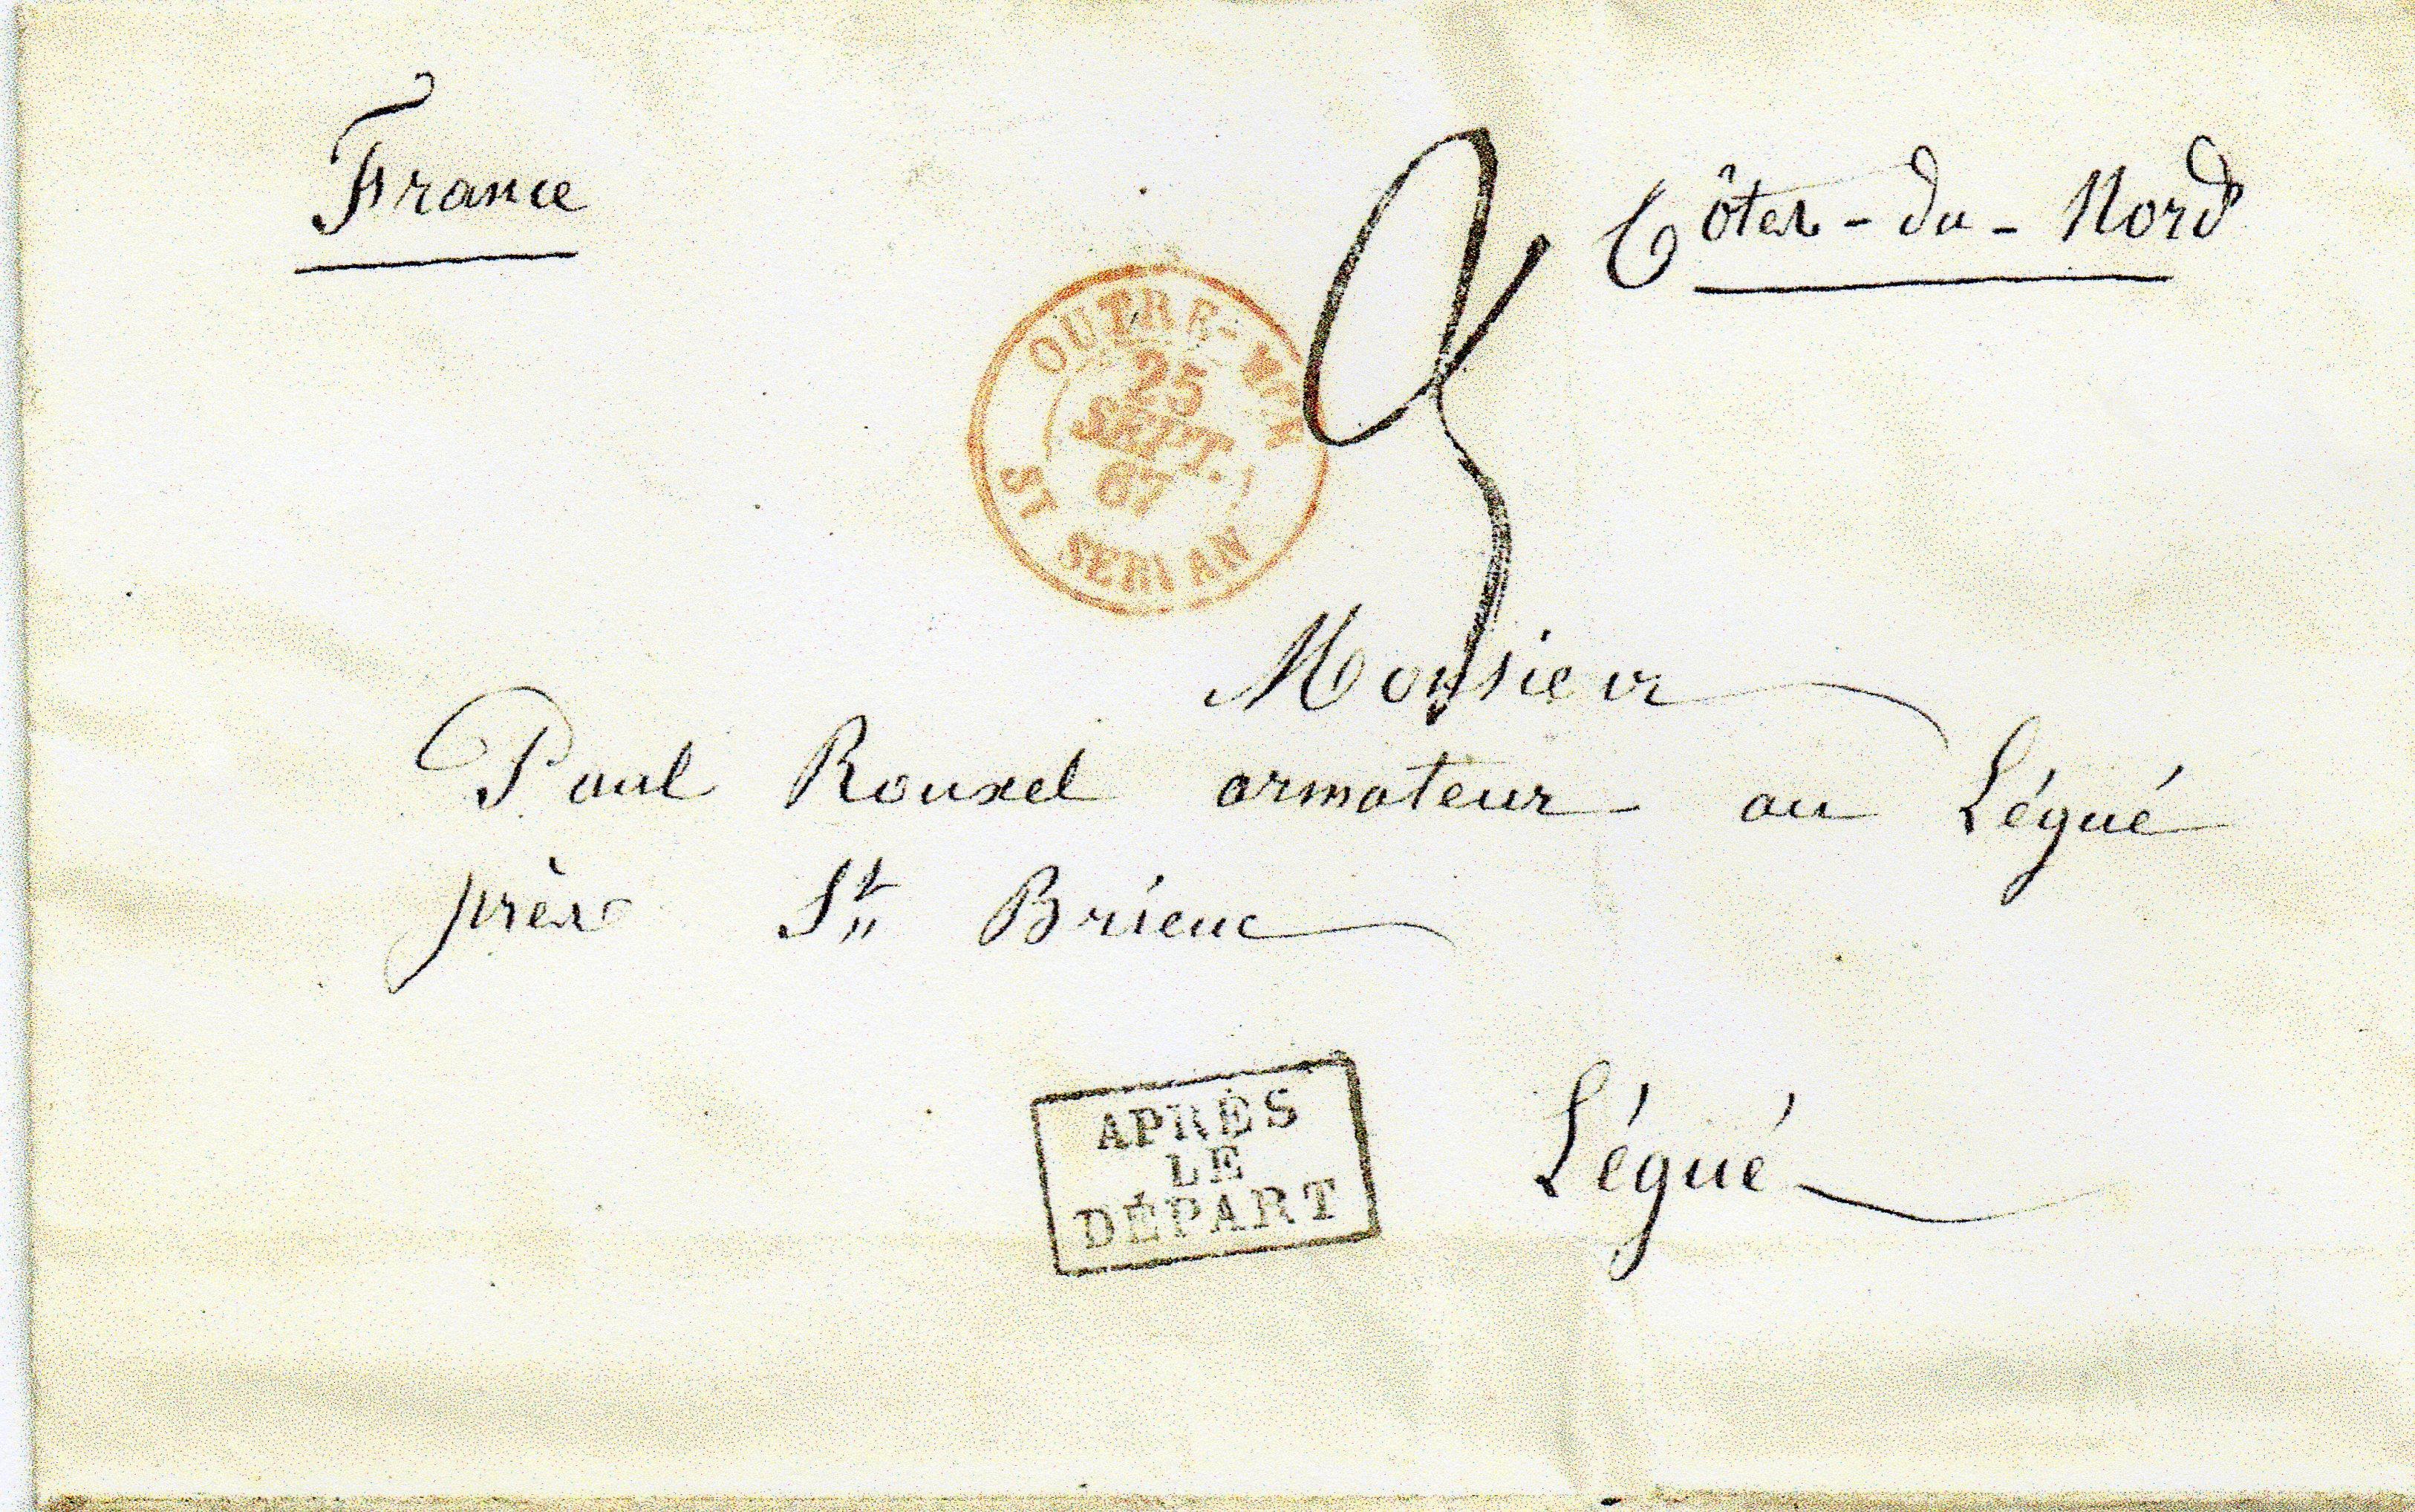 France
Côtes-du-Nord
OUTRE-MER
25
SEPT.
67
ST SERVAN
Monsieur
Paul Rouxel armateur au Légué
près St Brieuc
APRÈS
LE
DÉPART
Légué